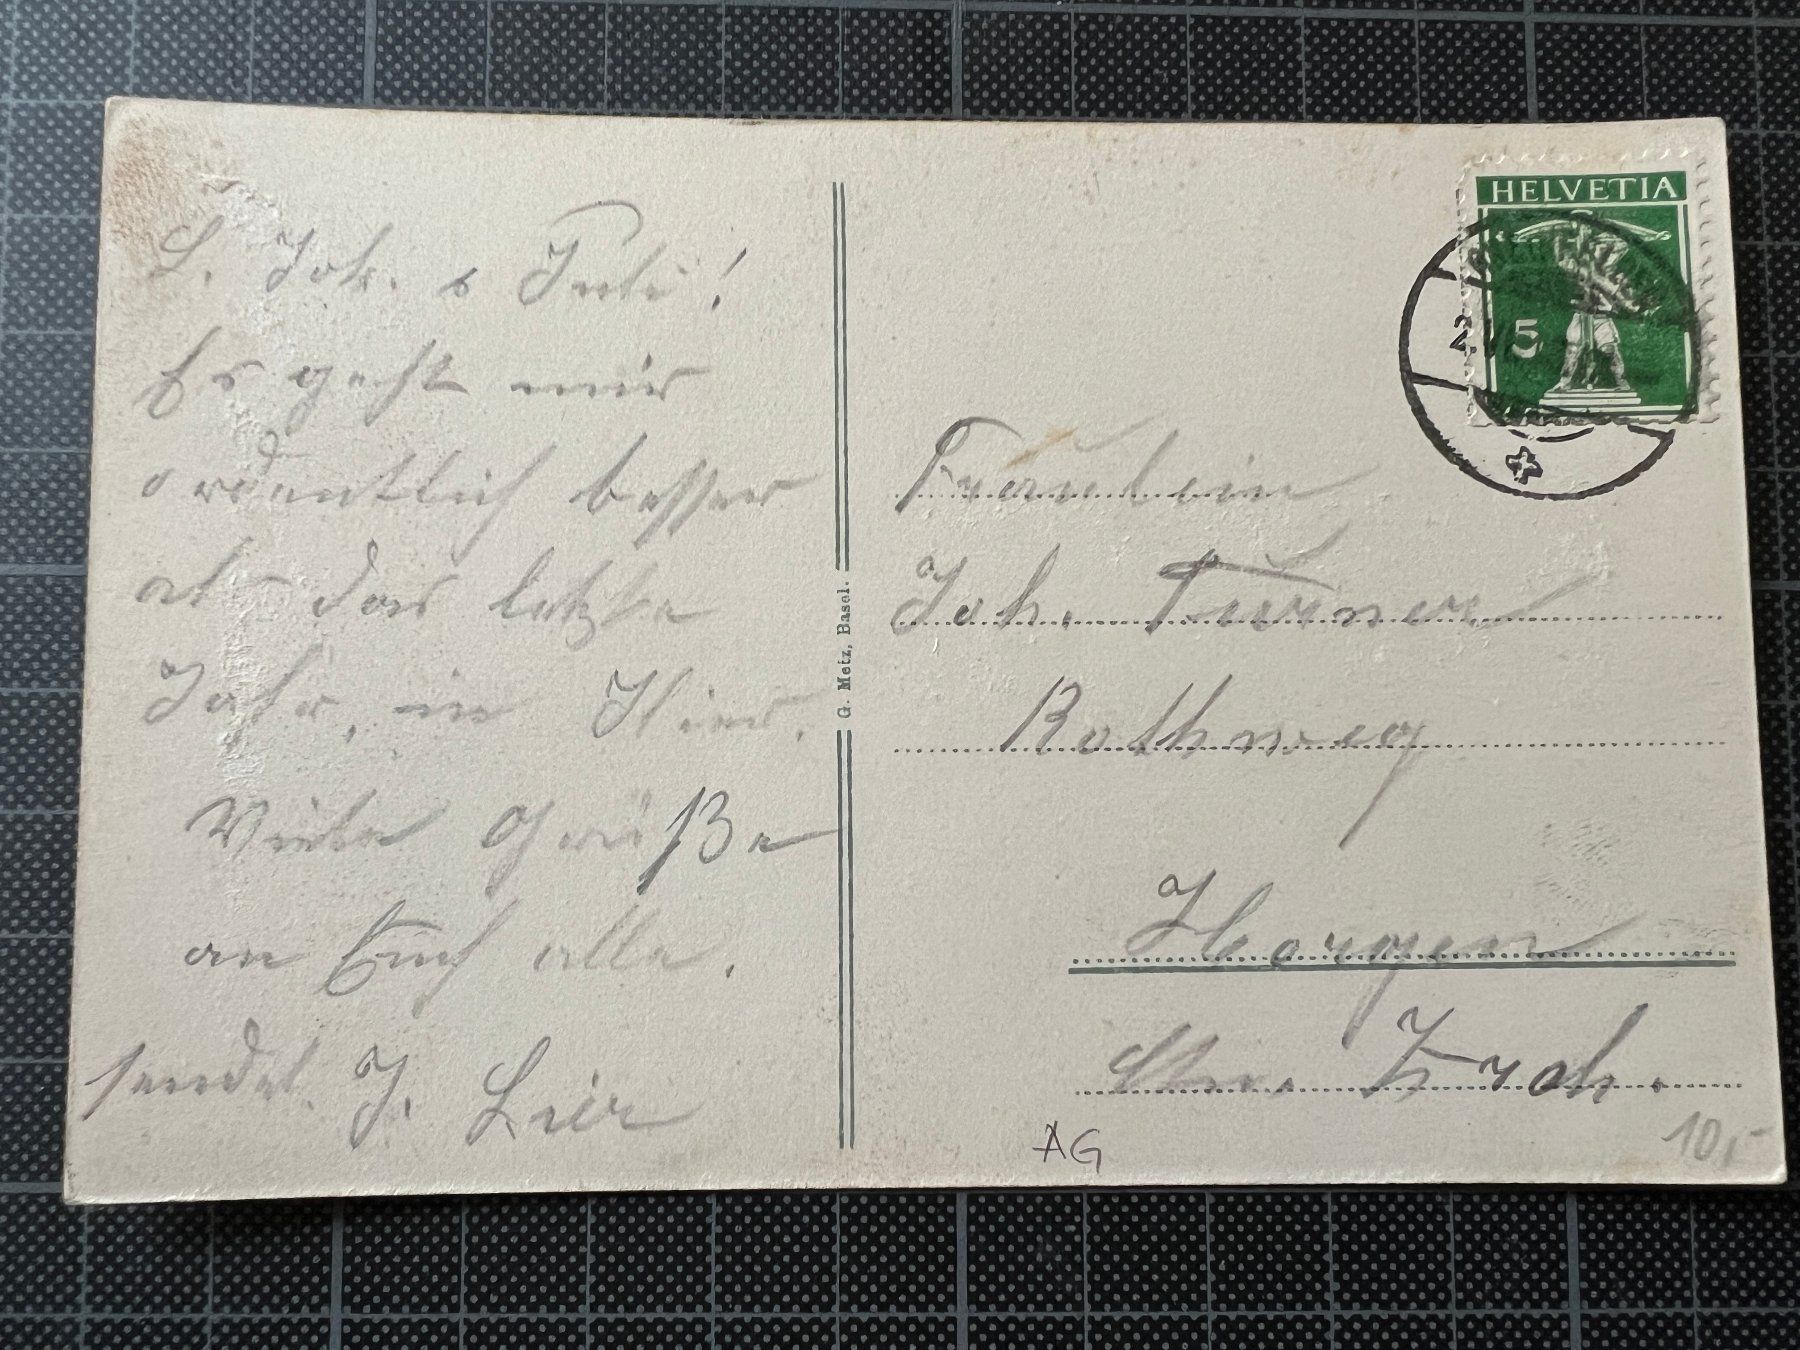 L. Joh. & Juli!
Es geht mir
ordentlich besser
als das letzte
Jahr, in Hier.
Viele Grüße
an Euch alle.
sendet J. Lier
G. Metz, Basel.
HELVETIA
5
Fräulein
Joh.
Rothweg
Horgen
Ktn. Zrch.
AG
10,-